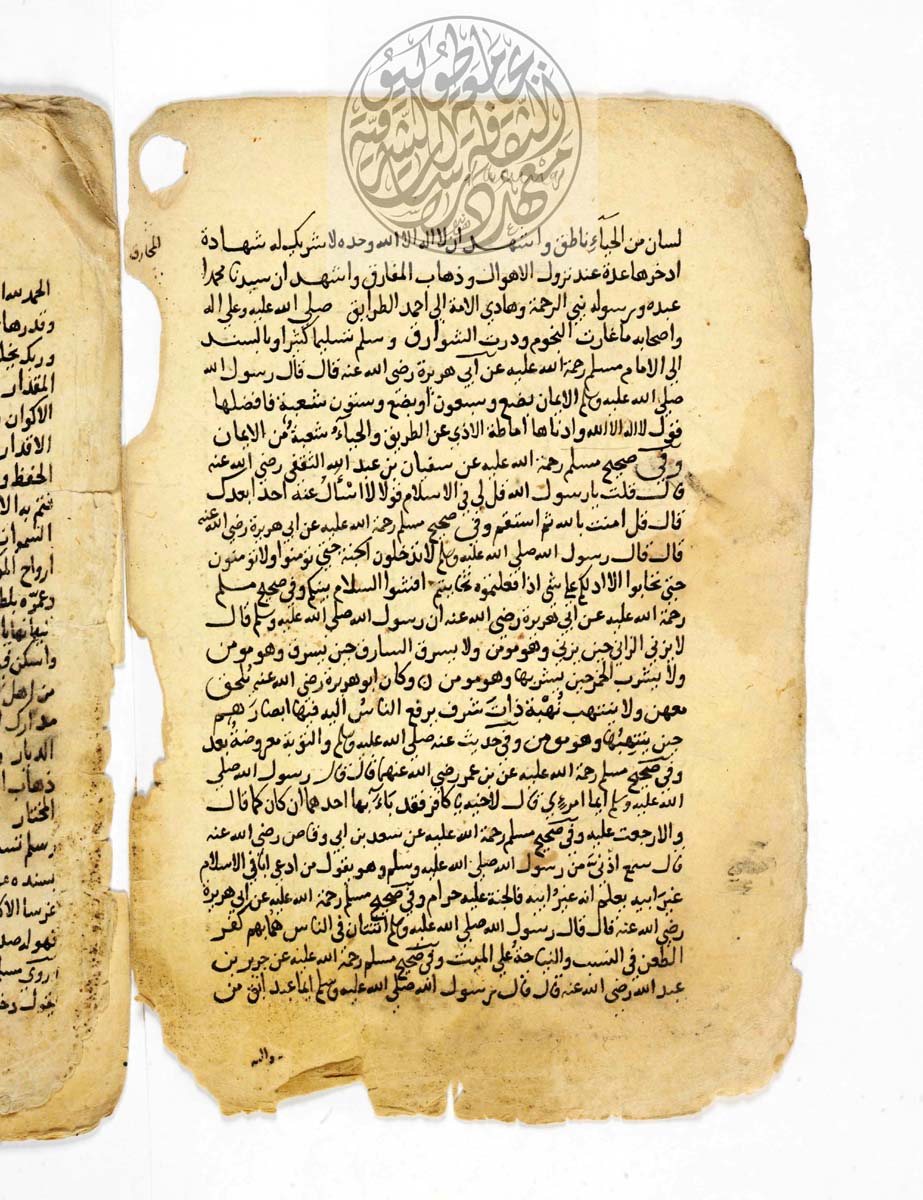 لسان من الحياء ناطق واشهد ان لا اله الا الله وحده لا شريك له شهادة
ادخرها عدة عند نزول الاهوال وذهاب المفارق واشهد ان سيدنا محمدا
عبده ورسوله نبي الرحمة وهادي الامة الى احمد الطرايق صلى الله عليه وعلى اله
واصحابه ما غارت النجوم ودرت الشوارق وسلم تسليما كثيرا وبالسند
الى الامام مسلم رحمة الله عليه عن ابي هريرة رضي الله عنه قال قال رسول الله
صلى الله عليه وسلم الايمان بضع وسبعون او بضع وستون شعبة فافضلها
قول لا اله الا الله وادناها اماطة الاذى عن الطريق والحياء شعبة من الايمان
وفي صحيح مسلم رحمة الله عليه عن سفيان بن عبد الله الثقفي رضي الله عنه
قال قلت يا رسول الله قل لي في الاسلام قولا لا اسأل عنه احدا بعدك
قال قل امنت بالله ثم استقم وفي صحيح مسلم رحمة الله عليه عن ابي هريرة رضي الله عنه
قال قال رسول الله صلى الله عليه وسلم لا تدخلون الجنة حتى تؤمنوا ولا تؤمنون
حتى تحابوا الا ادلكم على شي اذا فعلتموه تحاببتم افشوا السلام بينكم وفي صحيح مسلم
رحمة الله عليه عن ابي هريرة رضي الله عنه ان رسول الله صلى الله عليه وسلم قال
لا يزني الزاني حين يزني وهو مومن ولا يسرق السارق حين يسرق وهو مومن
ولا يشرب الخمر حين يشربها وهو مومن وكان ابو هريرة رضي الله عنه يلحق
معهن ولا ينتهب نهبة ذات شرف يرفع الناس اليه فيها ابصارهم
حين ينتهبها وهو مومن وفي حديث عنه صلى الله عليه وسلم والتوبة معروضة بعد
وفي صحيح مسلم رحمة الله عليه عن بن عمر رضي الله عنهما قال قال رسول الله صلى
الله عليه وسلم ايما امرءي قال لاخيه يا كافر فقد باء بها احدهما ان كان كما قال
والا رجعت عليه وفي صحيح مسلم رحمة الله عليه عن سعد بن ابي وقاص رضي الله عنه
قال سمع اذني من رسول الله صلى الله عليه وسلم وهو يقول من ادعى ابا في الاسلام
غير ابيه يعلم انه غير ابيه فالجنة عليه حرام وفي صحيح مسلم رحمة الله عليه عن ابي هريرة
رضي الله عنه قال قال رسول الله صلى الله عليه وسلم اثنتان في الناس هما بهم كفر
الطعن في النسب والنياحة على الميت وفي صحيح مسلم رحمة الله عليه عن جرير بن
عبد الله رضي الله عنه قال قال رسول الله صلى الله عليه وسلم ايما عبد ابق من
الحمد لله
المقدار
الاكوان
الاقدار
الحفظ و
السموات
ارواح
من اهل
الديار
المختار